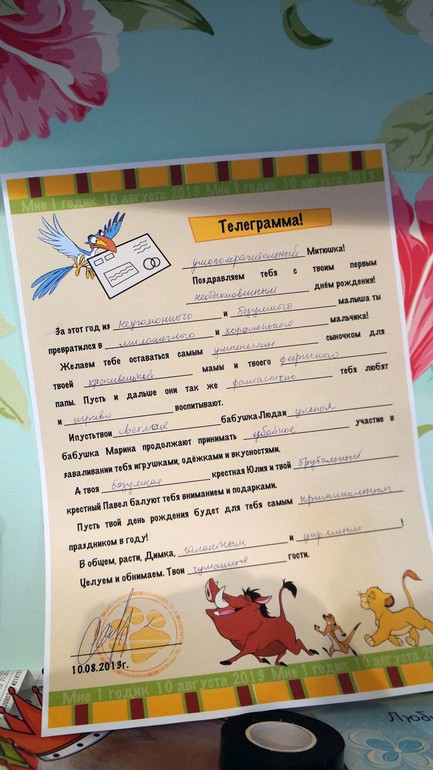 Мне 1 годик 10 августа 2013 Мне 1 годик 10 августа 2013
Телеграмма!
умопомрачительный Митюшка!
Поздравляем тебя с твоим первым
необыкновенным днём рождения!
За этот год из неугомонного и безумного малыша ты
превратился в милашечного и мальчика!
Желаем тебе оставаться самым сыночком для
твоей красивенной мамы и твоего папы
папы. Пусть и дальше они так же фантастично тебя любят
и игриво воспитывают.
И пусть твои светлая бабушка Люда и умная
бабушка Марина продолжают принимать убойное участие в
заваливании тебя игрушками, одёжками и вкусностями.
А твоя безумная крестная Юлия и твой брутальный
крестный Павел балуют тебя вниманием и подарками.
Пусть твой день рождения будет для тебя самым
праздником в году!
В общем, расти, Димка, галантным и упрямым !
Целуем и обнимаем. Твои гости.
10.08.2013г.
Мне 1 годик 10 августа 2013 Мне 1 годик 10 августа 2013
Люби